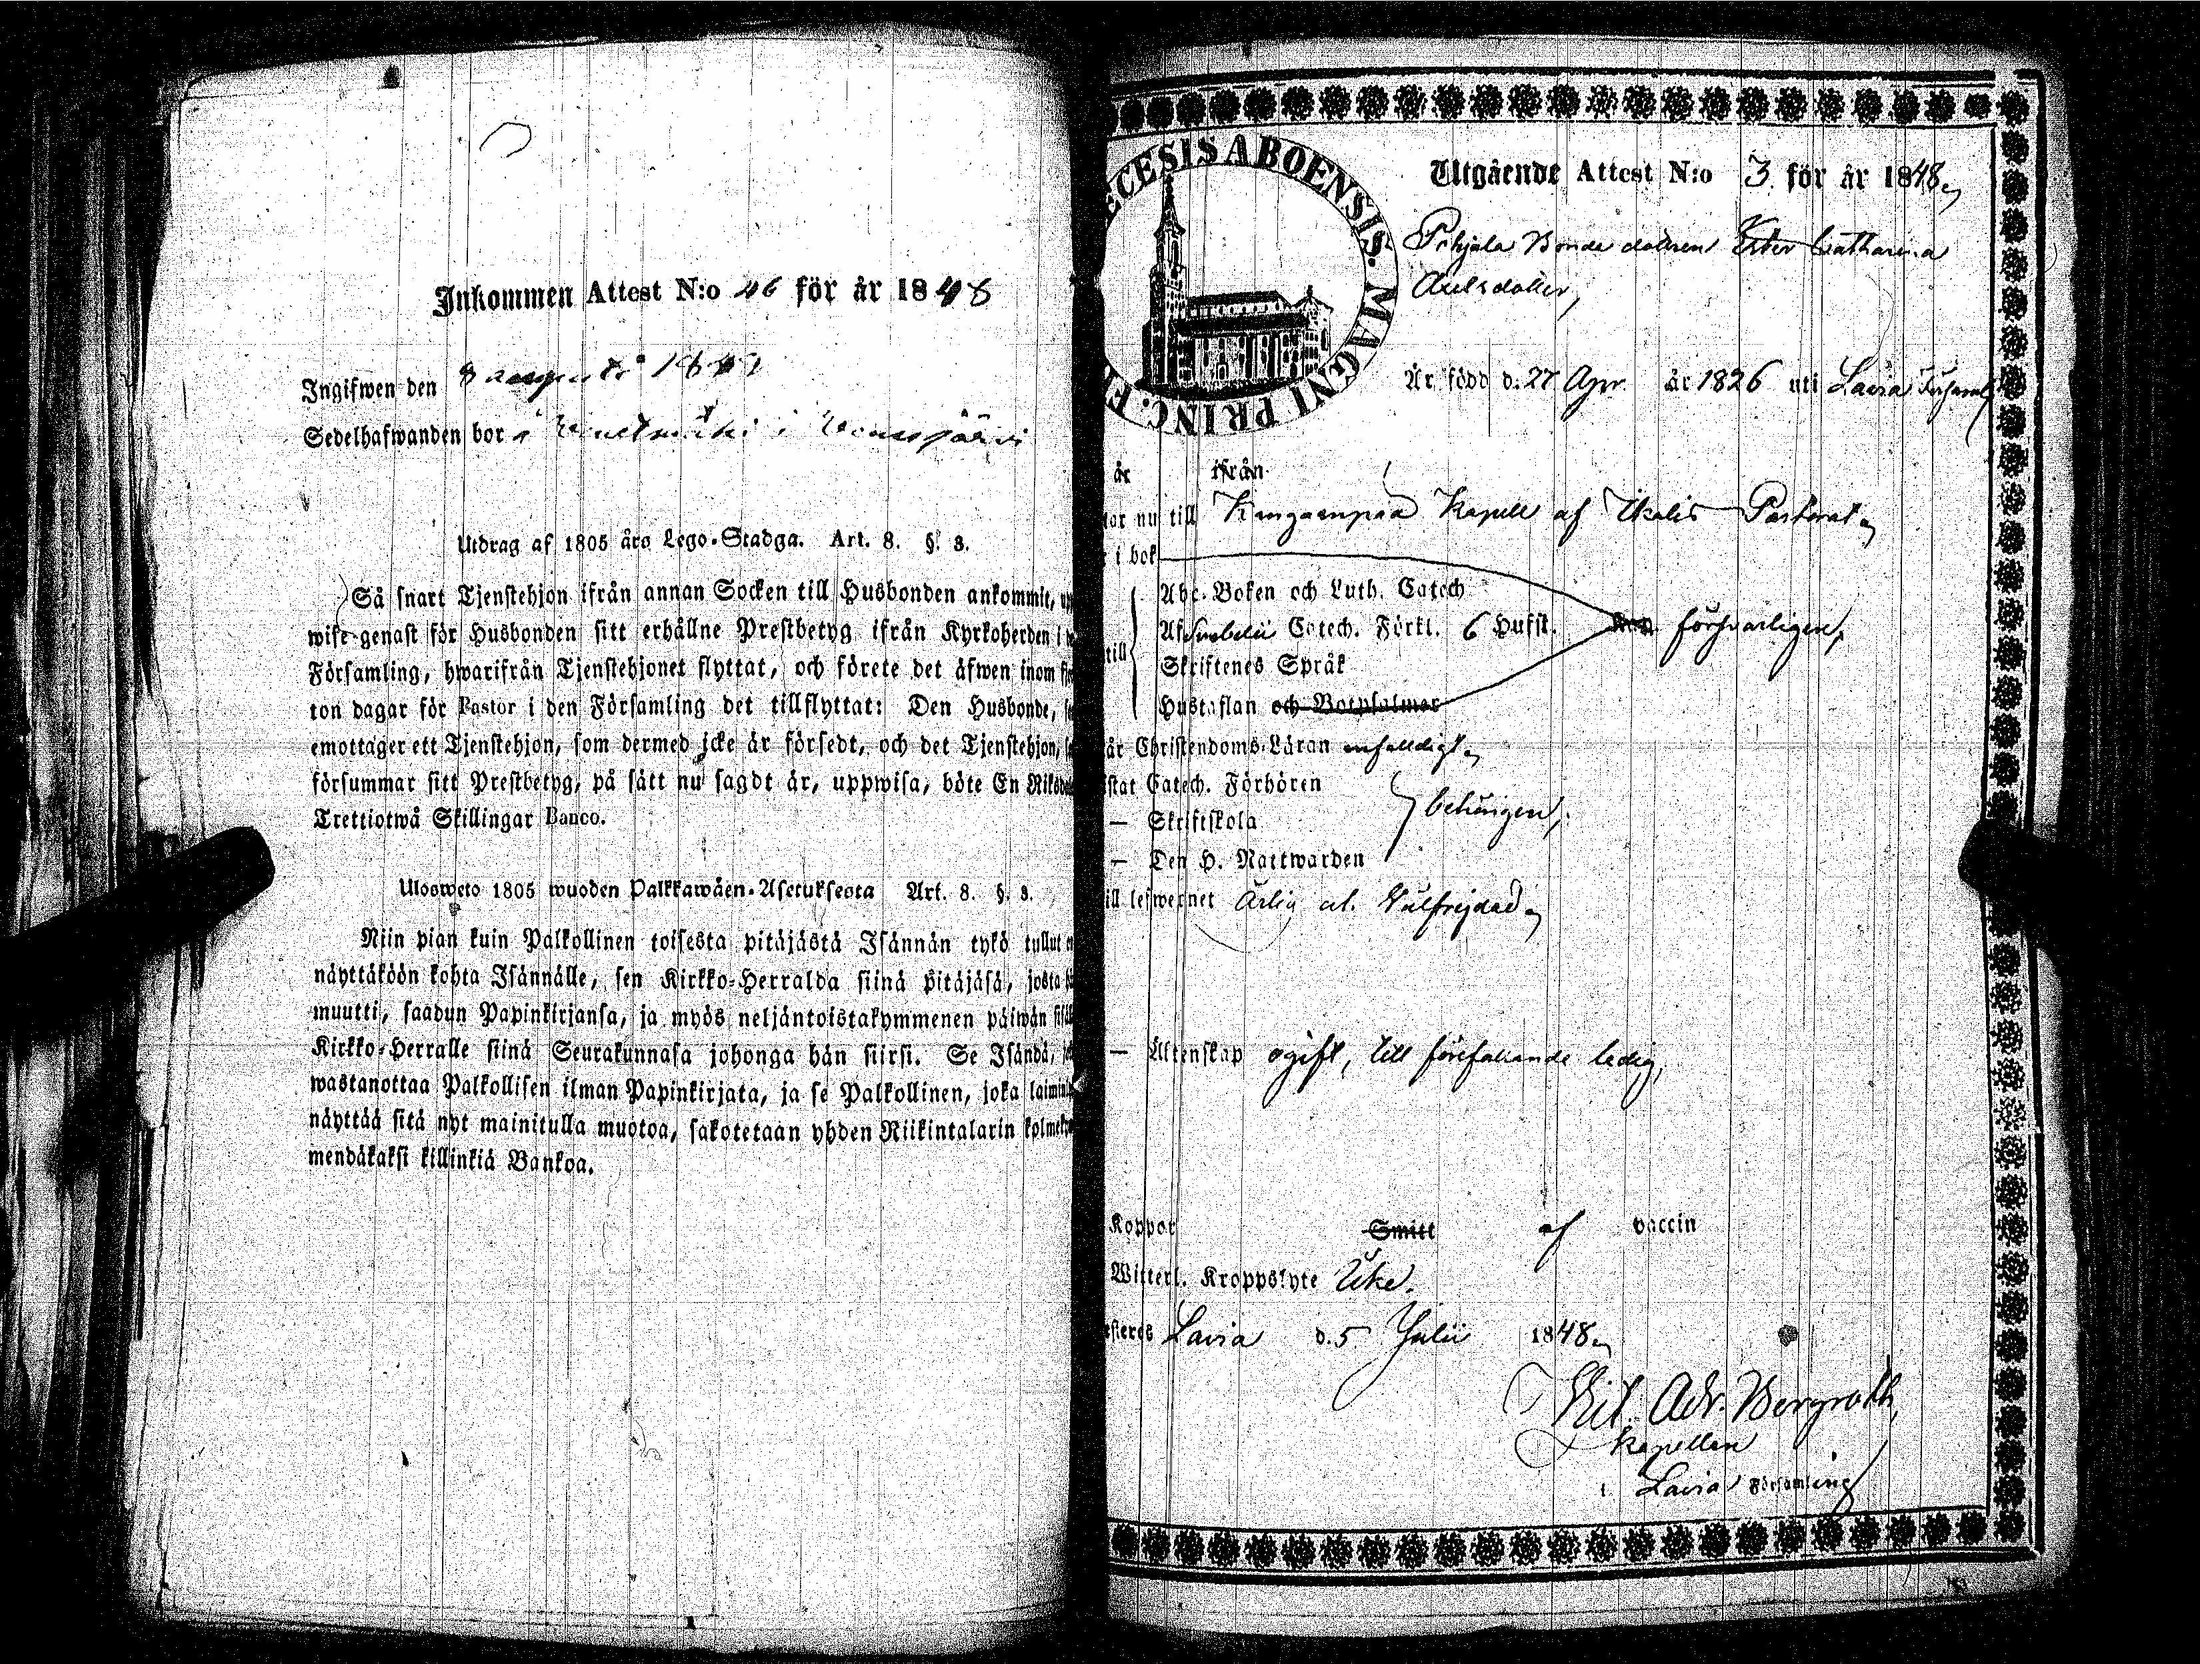 Inkommen Attest N:o 46 för år 1848
Ingifwen den 8 augusti
Sedelhafwanden bor å i
Utdrag af 1805 års Lego-Stadga. Art. 8. §. 3.
Så snart Tjenstehjon ifrån annan Socken till Husbonden ankommit,
wise genast för Husbonden sitt erhållne Prestbetyg ifrån Kyrkoherden i
Församling, hwarifrån Tjenstehjonet flyttat, och förete det äfwen inom
ton dagar för Pastor i den Församling det tillflyttat: Den Husbonde,
emottager ett Tjenstehjon, som dermed icke är försedt, och det Tjenstehjon,
försummar sitt Prestbetyg, på sätt nu sagdt är, uppwisa, böte En
Trettiotwå Skillingar Banco.
Ulosweto 1805 wuoden Palkkawäen-Asetuksesta Art. 8. §. 3.
Niin pian kuin Palkollinen toisesta pitäjästä Isännän tykö tullut
näyttäköön kohta Isännälle, sen Kirkko-Herralda siinä pitäjäsä, josta
muutti, saadun Papinkirjansa, ja myös neljäntoistakymmenen päiwän
Kirkko-Herralle siinä Seurakunnasa johonga hän siirsi. Se Isändä,
wastanottaa Palkollisen ilman Papinkirjata, ja se Palkollinen, joka
näyttää sitä nyt mainitulla muotoa, sakotetaan yhden Riikintalarin
mendäkaksi killinkiä Bankoa.
ECESIS ABOENSIS. MAGNI PRINC. F
Utgående Attest N:o 3 för år 1848
Pohjala Bonde dottren Ester Catharina
Axelsdotter,
Är född d. 27 Apr. år 1826 uti Lavia Församl
år ifrån
nu till Kangaanpää Kapell af Ikalis Pastorat
i bok
Abc-Boken och Luth. Catech
Af Svebelii Catech. Förkl. 6 Hufst. försvarligen,
till Skriftenes Språk
Hustaflan och Botpsalmer
år Christendoms-Läran enfaldigt
istat Catech. Förhören
— Skriftskola behörigen,
— Den H. Nattwarden
ill lefwernet Ärlig och Välfrejdad
— Äktenskap ogift, till förefallande ledig,
Koppor Smitt af vaccin
Witterl. Kroppslyte Icke.
esteres Lavia d. 5 Julii 1848
Adr. Bergroth,
Kapellan
i Lavia Församling